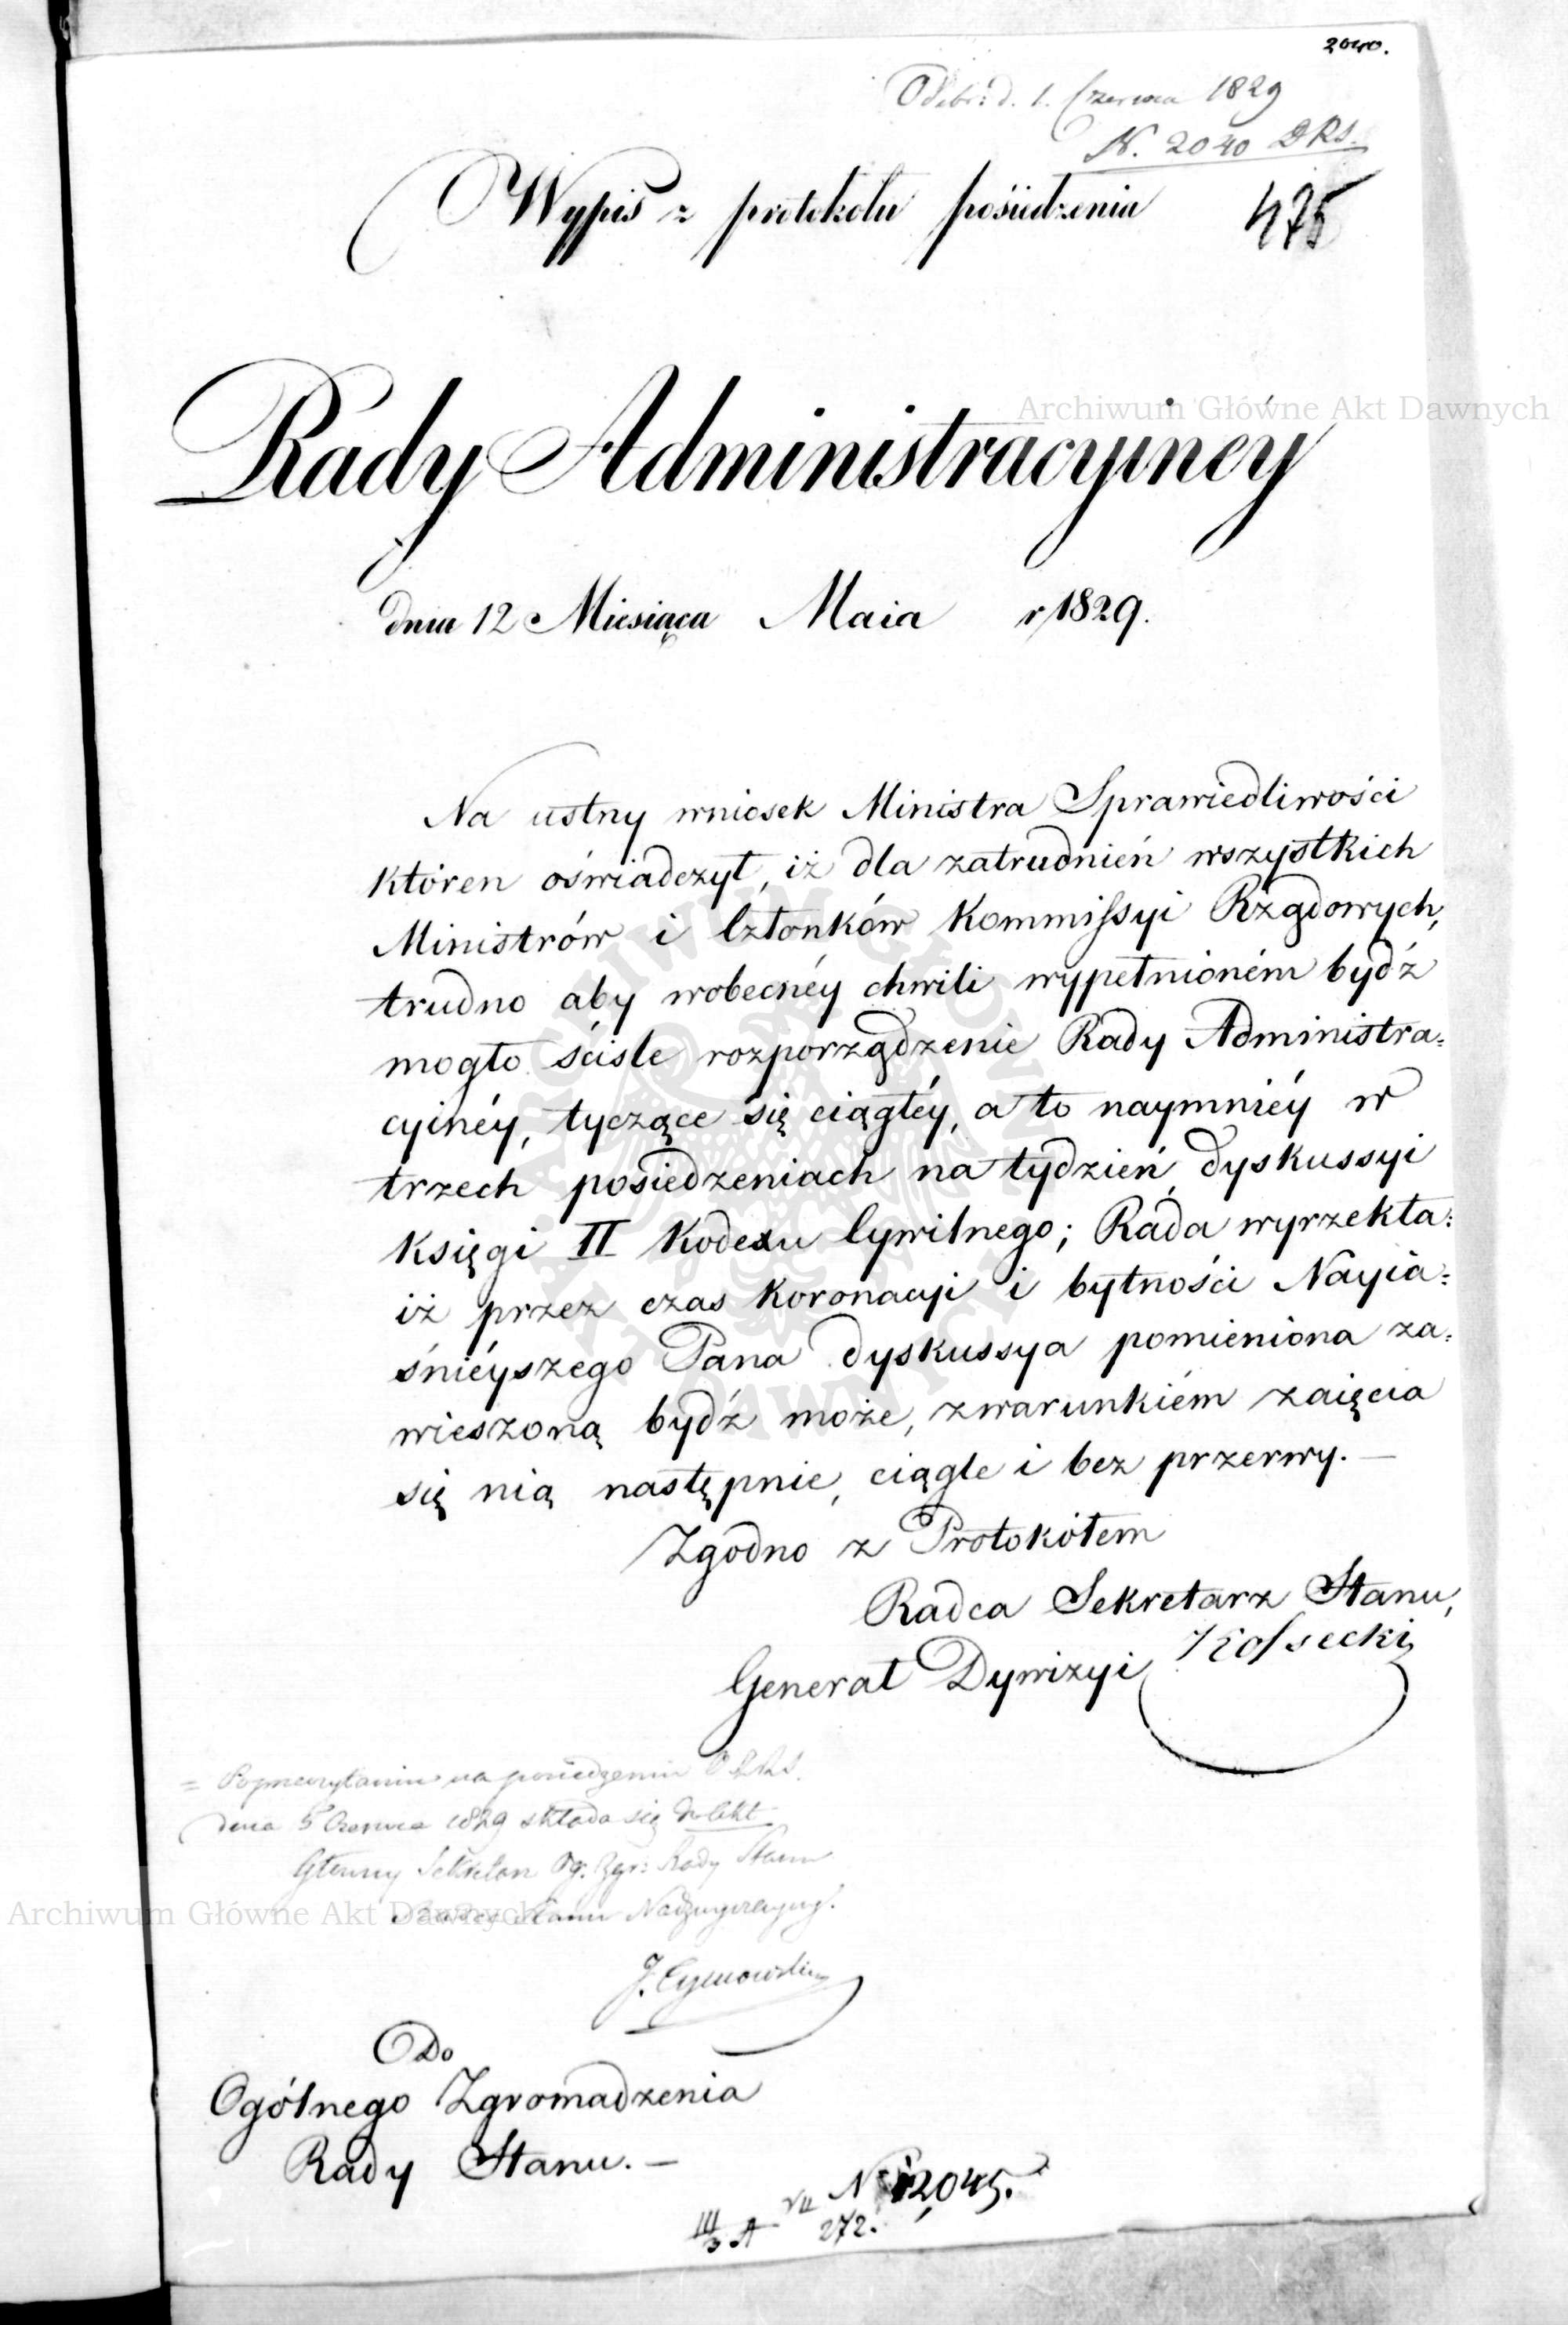 2040.
Odebr: d. 1. Czerwca 1829
N. 2040 DRS.
Wypis z protokołu posiedzenia
475
Rady Administracyiney
dnia 12 Miesiąca Maia r 1829.
Na ustny wniosek Ministra Sprawiedliwości
któren oświadczył, iż dla zatrudnień wszystkich
Ministrów i Członków Kommissyi Rządowych,
trudno aby wobecnéy chwili wypełnioném bydź
mogło ściśle rozporządzenie Rady Administra=
cyinéy, tyczące się ciągłéy, a to naymniéy w
trzech posiedzeniach na tydzień dyskussyi
księgi II Kodexu Cywilnego; Rada wyrzekła:
iż przez czas koronacyi i bytności Nayia=
śniéyszego Pana dyskussya pomieniona za=
wieszoną bydź może, zwarunkiém zaięcia
się nią następnie, ciągle i bez przerwy. —
Zgodno z Protokółem
Radca Sekretarz Stanu,
Generał Dywizyi Kossecki
= Poprzeczytaniu na posiedzeniu
dnia 5 Czerwca 1829 składa się do Akt
Główny Sekretarz Og: Zgr: Rady Stanu
Radca Stanu Nadzwyczayny.
J. Tymowski
Do
Ogólnego Zgromadzenia
Rady Stanu. —
N 12045.
III A VII 272.
3
Archiwum Główne Akt Dawnych
Archiwum Główne Akt Dawnych
ARCHIWUM GŁÓWNE AKT DAWNYCH